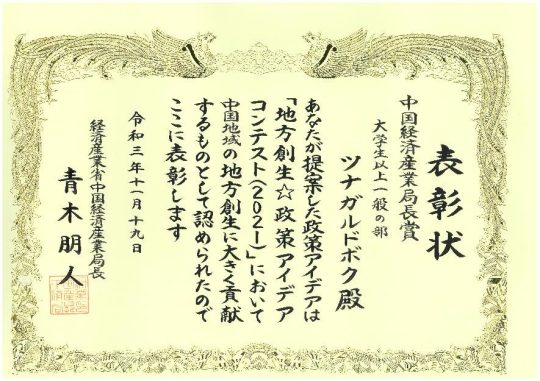 表彰状
中国経済産業局長賞
大学生以上一般の部
ツナガルドボク殿
あなたが提案した政策アイデアは
「地方創生☆政策アイデア
コンテスト(2021)」において
中国地域の地方創生に大きく貢献
するものとして認められたので
ここに表彰します
令和三年十一月十九日
経済産業省中国経済産業局長
青木朋人